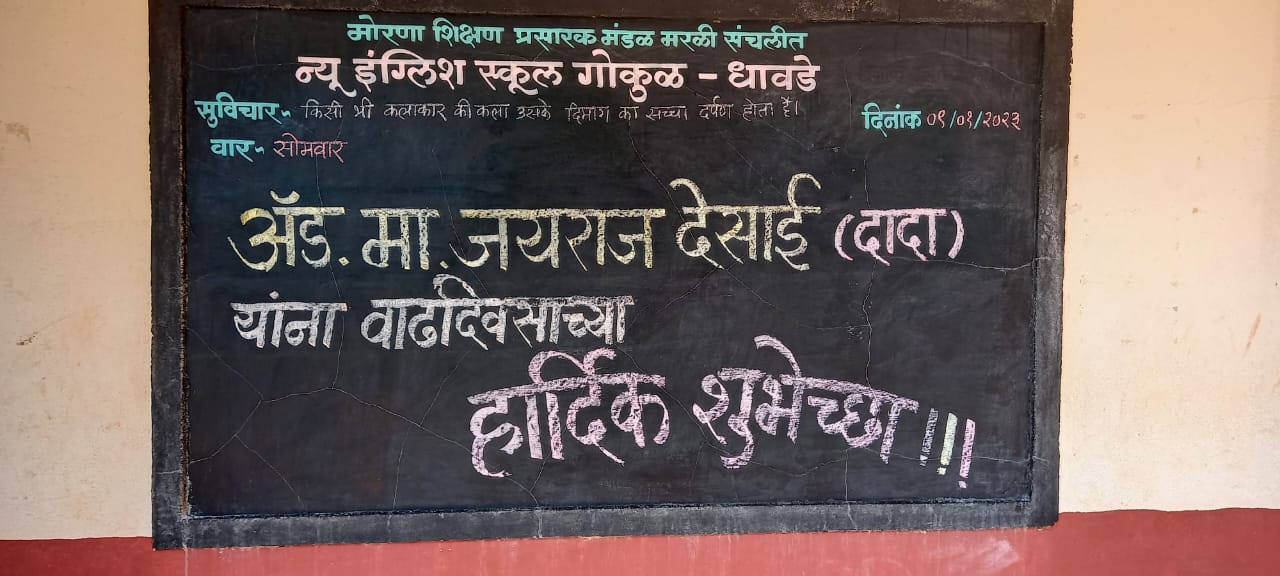 मोरणा शिक्षण प्रसारक मंडळ मरळी संचलीत
न्यू इंग्लिश स्कूल गोकुळ - धावडे
सुविचार - किसी भी कलाकार की कला उसके दिमाग का सच्चा दर्पण होता है।
दिनांक ०९/०१/२०२३
वार - सोमवार
अॅड. मा. जयराज देसाई (दादा)
यांना वाढदिवसाच्या
हार्दिक शुभेच्छा!!!